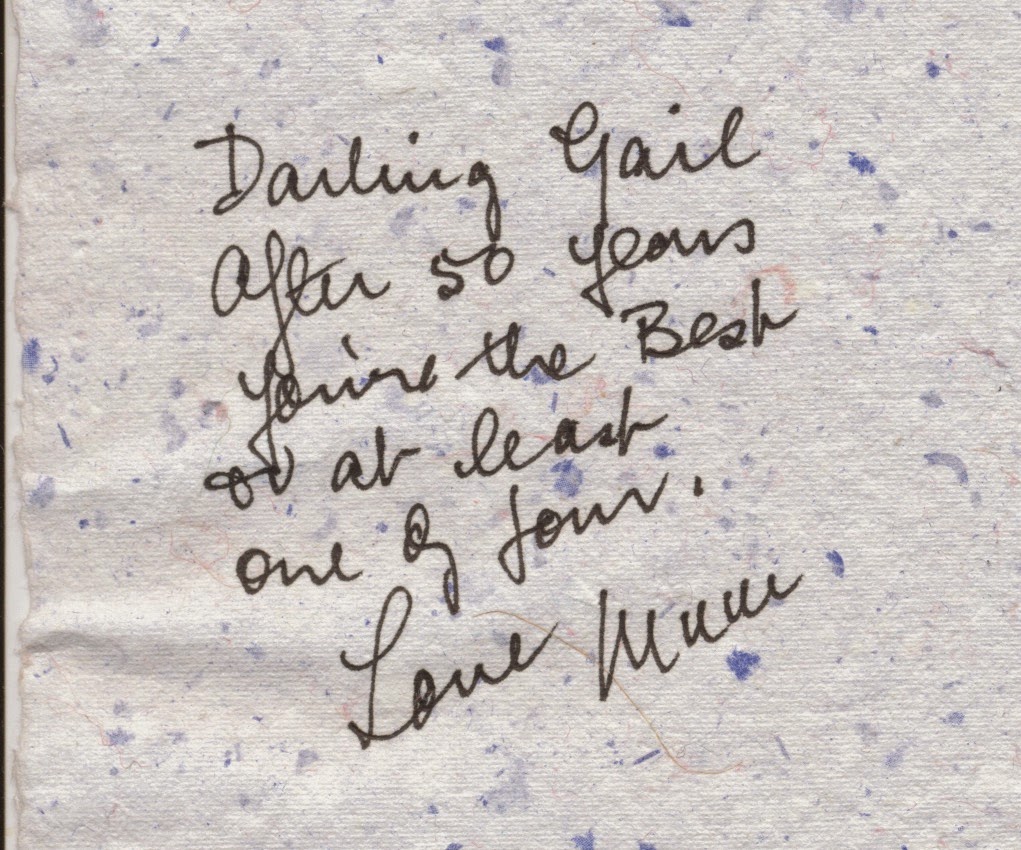 Darling Gail
After 50 years
you're the Best
or at least
one of four.
Love Mum